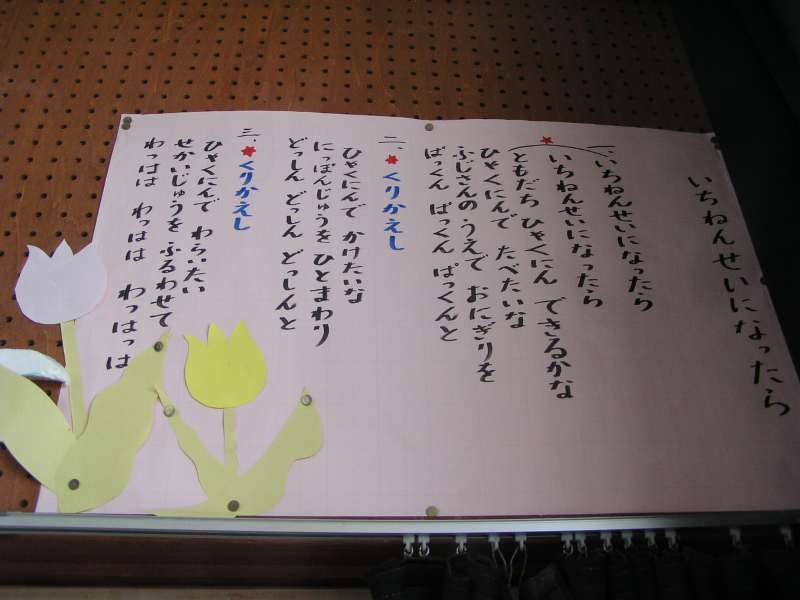 いちねんせいになったら
一、いちねんせいになったら
いちねんせいになったら
ともだち ひゃくにん できるかな
ひゃくにんで たべたいな
ふじさんのうえで おにぎりを
ぱっくん ぱっくん ぱっくんと
二、*くりかえし
ひゃくにんで かけたいな
にっぽんじゅうを ひとまわり
どっしん どっしん どっしんと
三、*くりかえし
ひゃくにんで わらいたい
せかいじゅうを ふるわせて
わっはは わっはは わっはっは